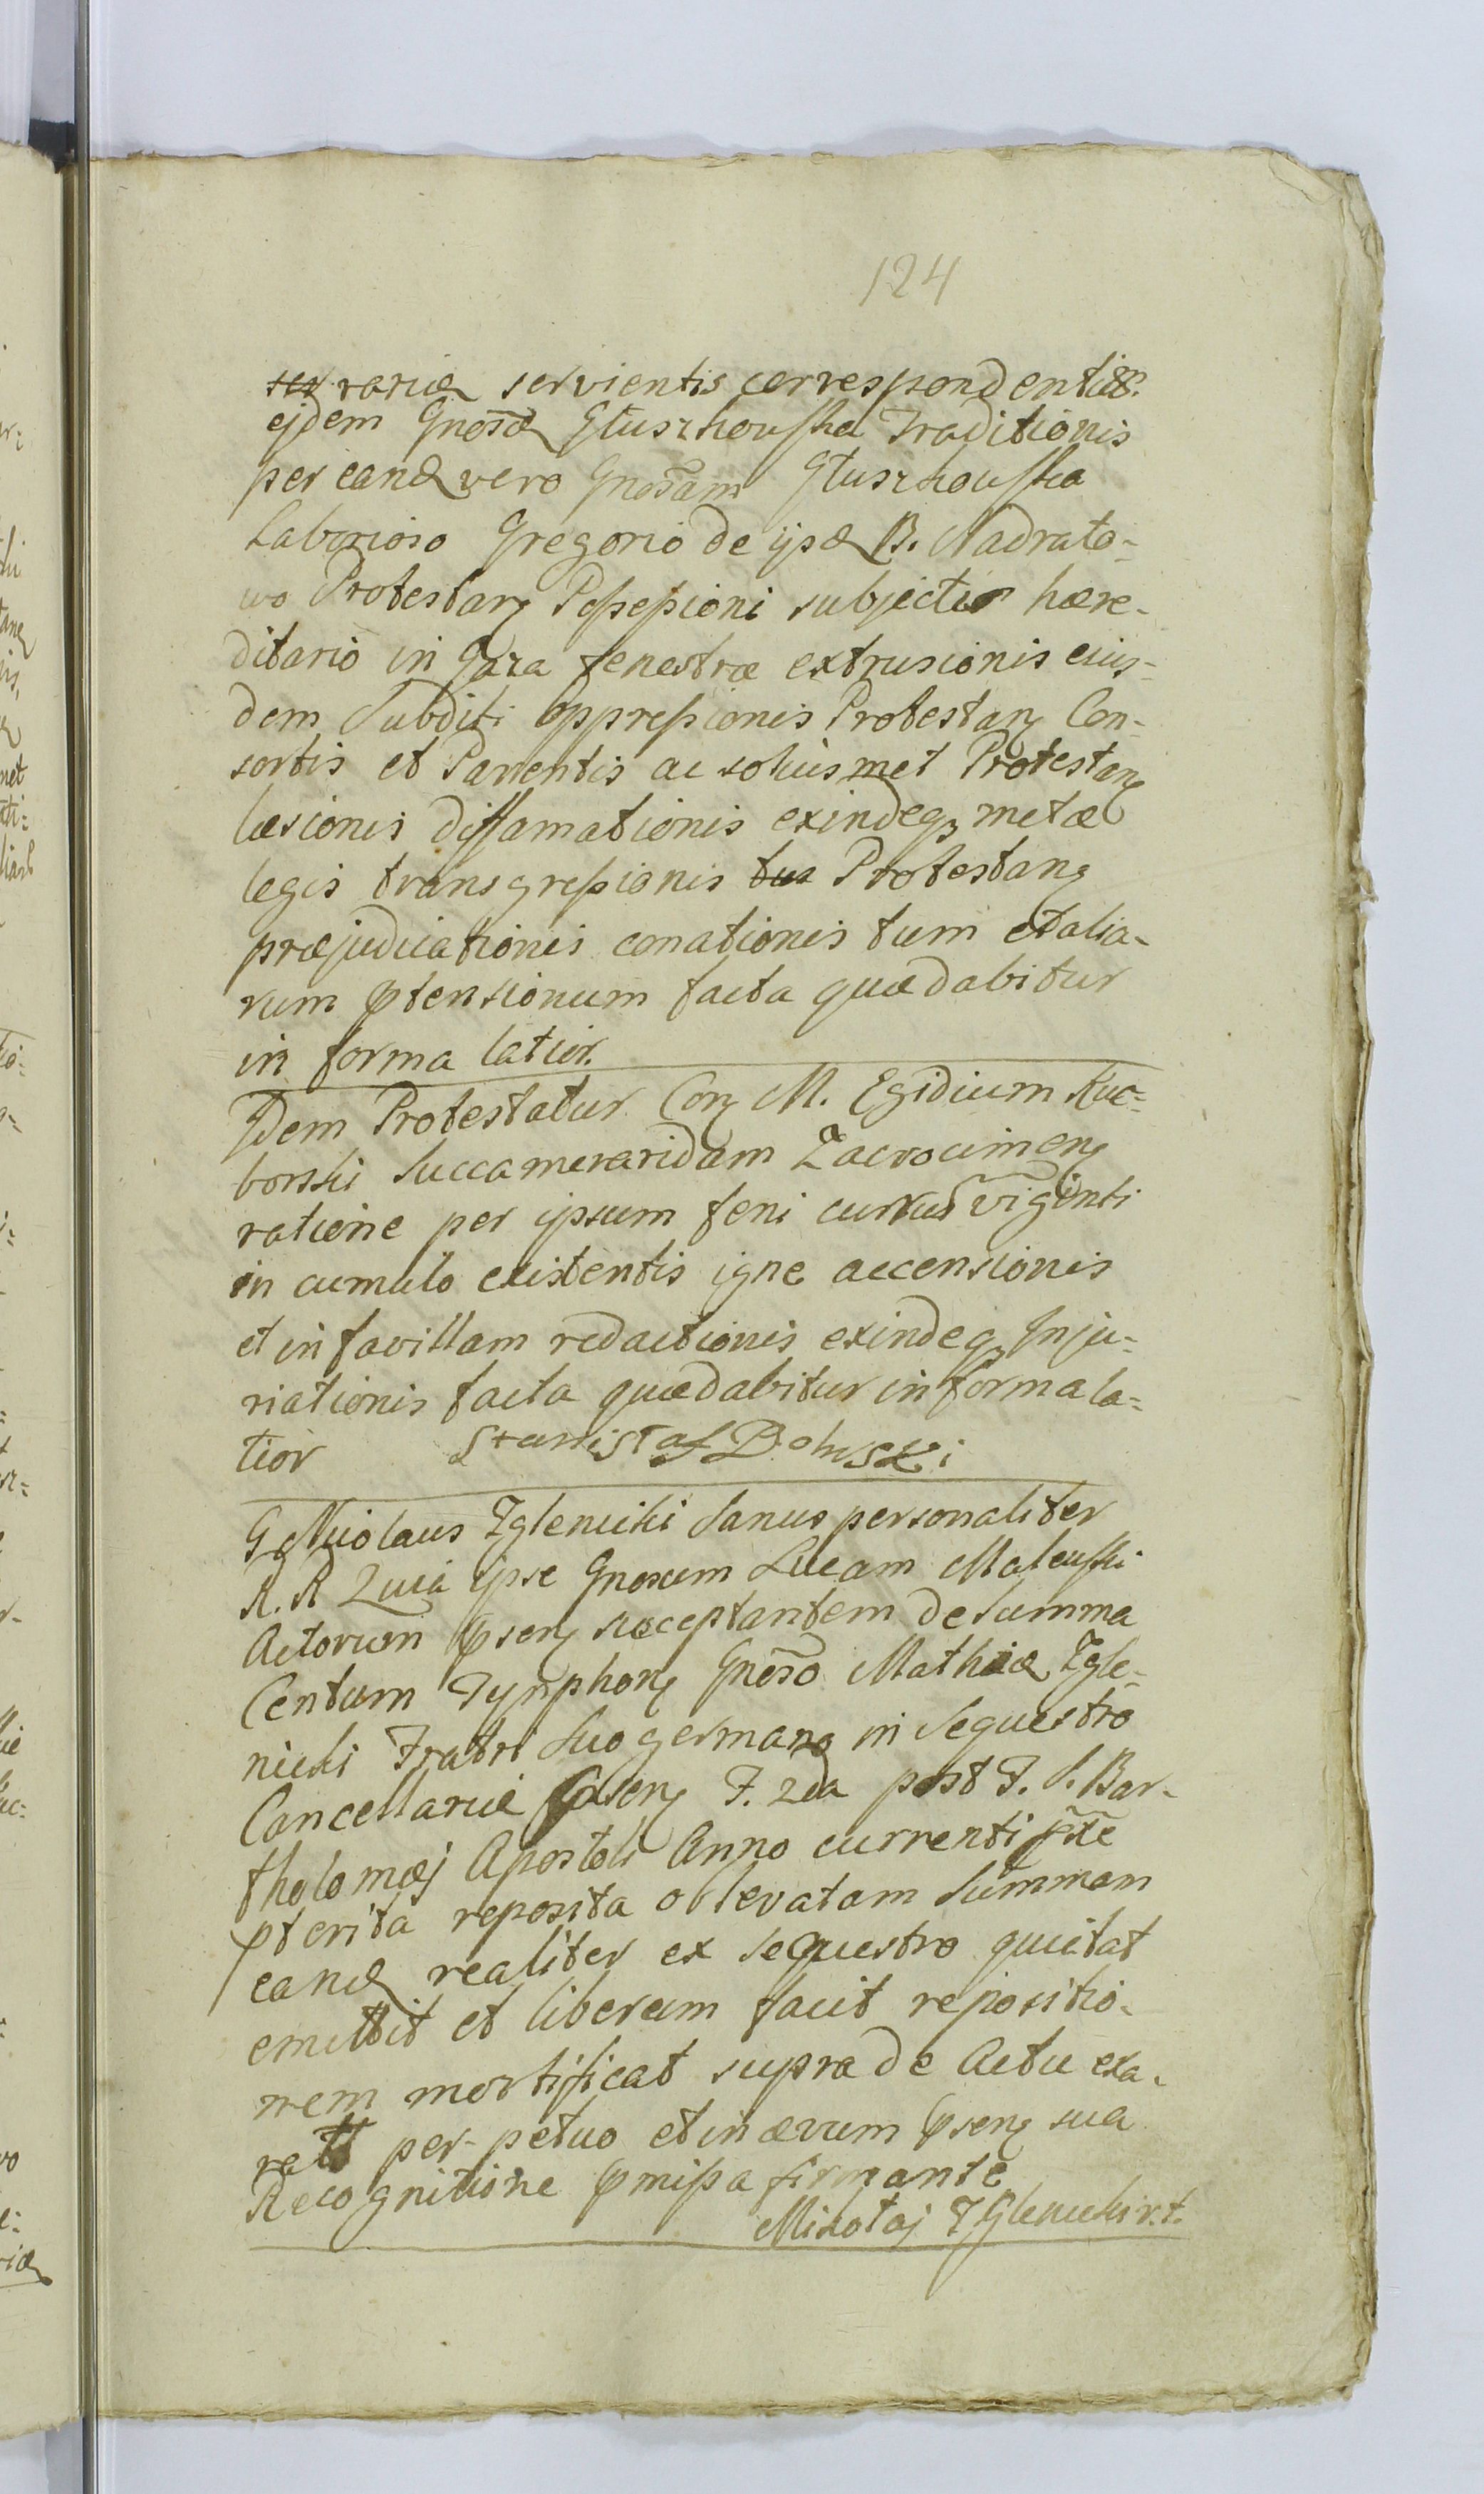 124
ser rariæ servientis correspondentiæ
ejdem Gnosæ Głuszkowska Traditionis
per eand vero Gnosam Głuszkowska
Laborioso Gregorio de ijsd B. Nadrato-
wo Protestang Possessioni subjecto hære-
ditario in Gaza fenestræ extrusionis eius-
dem Subditi Oppressionis Protestang Con-
sortis et Parentis ac solius met Protestang
læsionis diffamationis exindeq metæ
legis transgressionis tus Protestang
præjudiciationis conationis tum et alia-
rum ptensionum facta quæ dabitur
in forma latior.
Idem Protestatur Con M. Egidium Kuc-
borski Succameraridam Zacrocimen
ratione per ipsum feni curruū viginti
in cumulo existentis igne accensionis
et in favillam redactionis exindeq Inju-
riationis facta quæ dabitur in forma la-
tior Stanisław Bolwski
G Nicolaus Zglenicki Sanus personaliter
R. R Quia ipse Gnosum Lucam Maleuski
Actorum psen suceptantem de Summa
Centum Tynphon Gnoso Mathiæ Zgle-
nicki Fratri Suo germano in Sequestro
Cancellariæ psen F. 2da post F. S. Bar-
tholomæj Apostoli Anno currenti pxe
pterita reposita oblevatam Summam
eand realiter ex sequestro quietat
emittit et liberum facit repositio-
nem mortificat supra de Actu exa-
rati per-petuo et in ævum psen sua
Recognitione pmissa firmante
Mikołaj Zglenicki r.t.